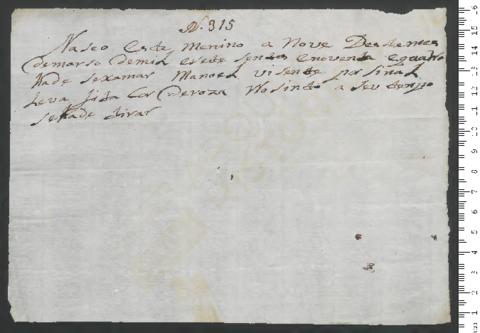 N. 315
Nasco Este Menino a Nove Deste mes
demarso demil esete sentos Enoventa Equatro
hade sexamar Manoel visente por sinal
leva fita Cor Deroza No sinto a seu tempo
sehade tirar